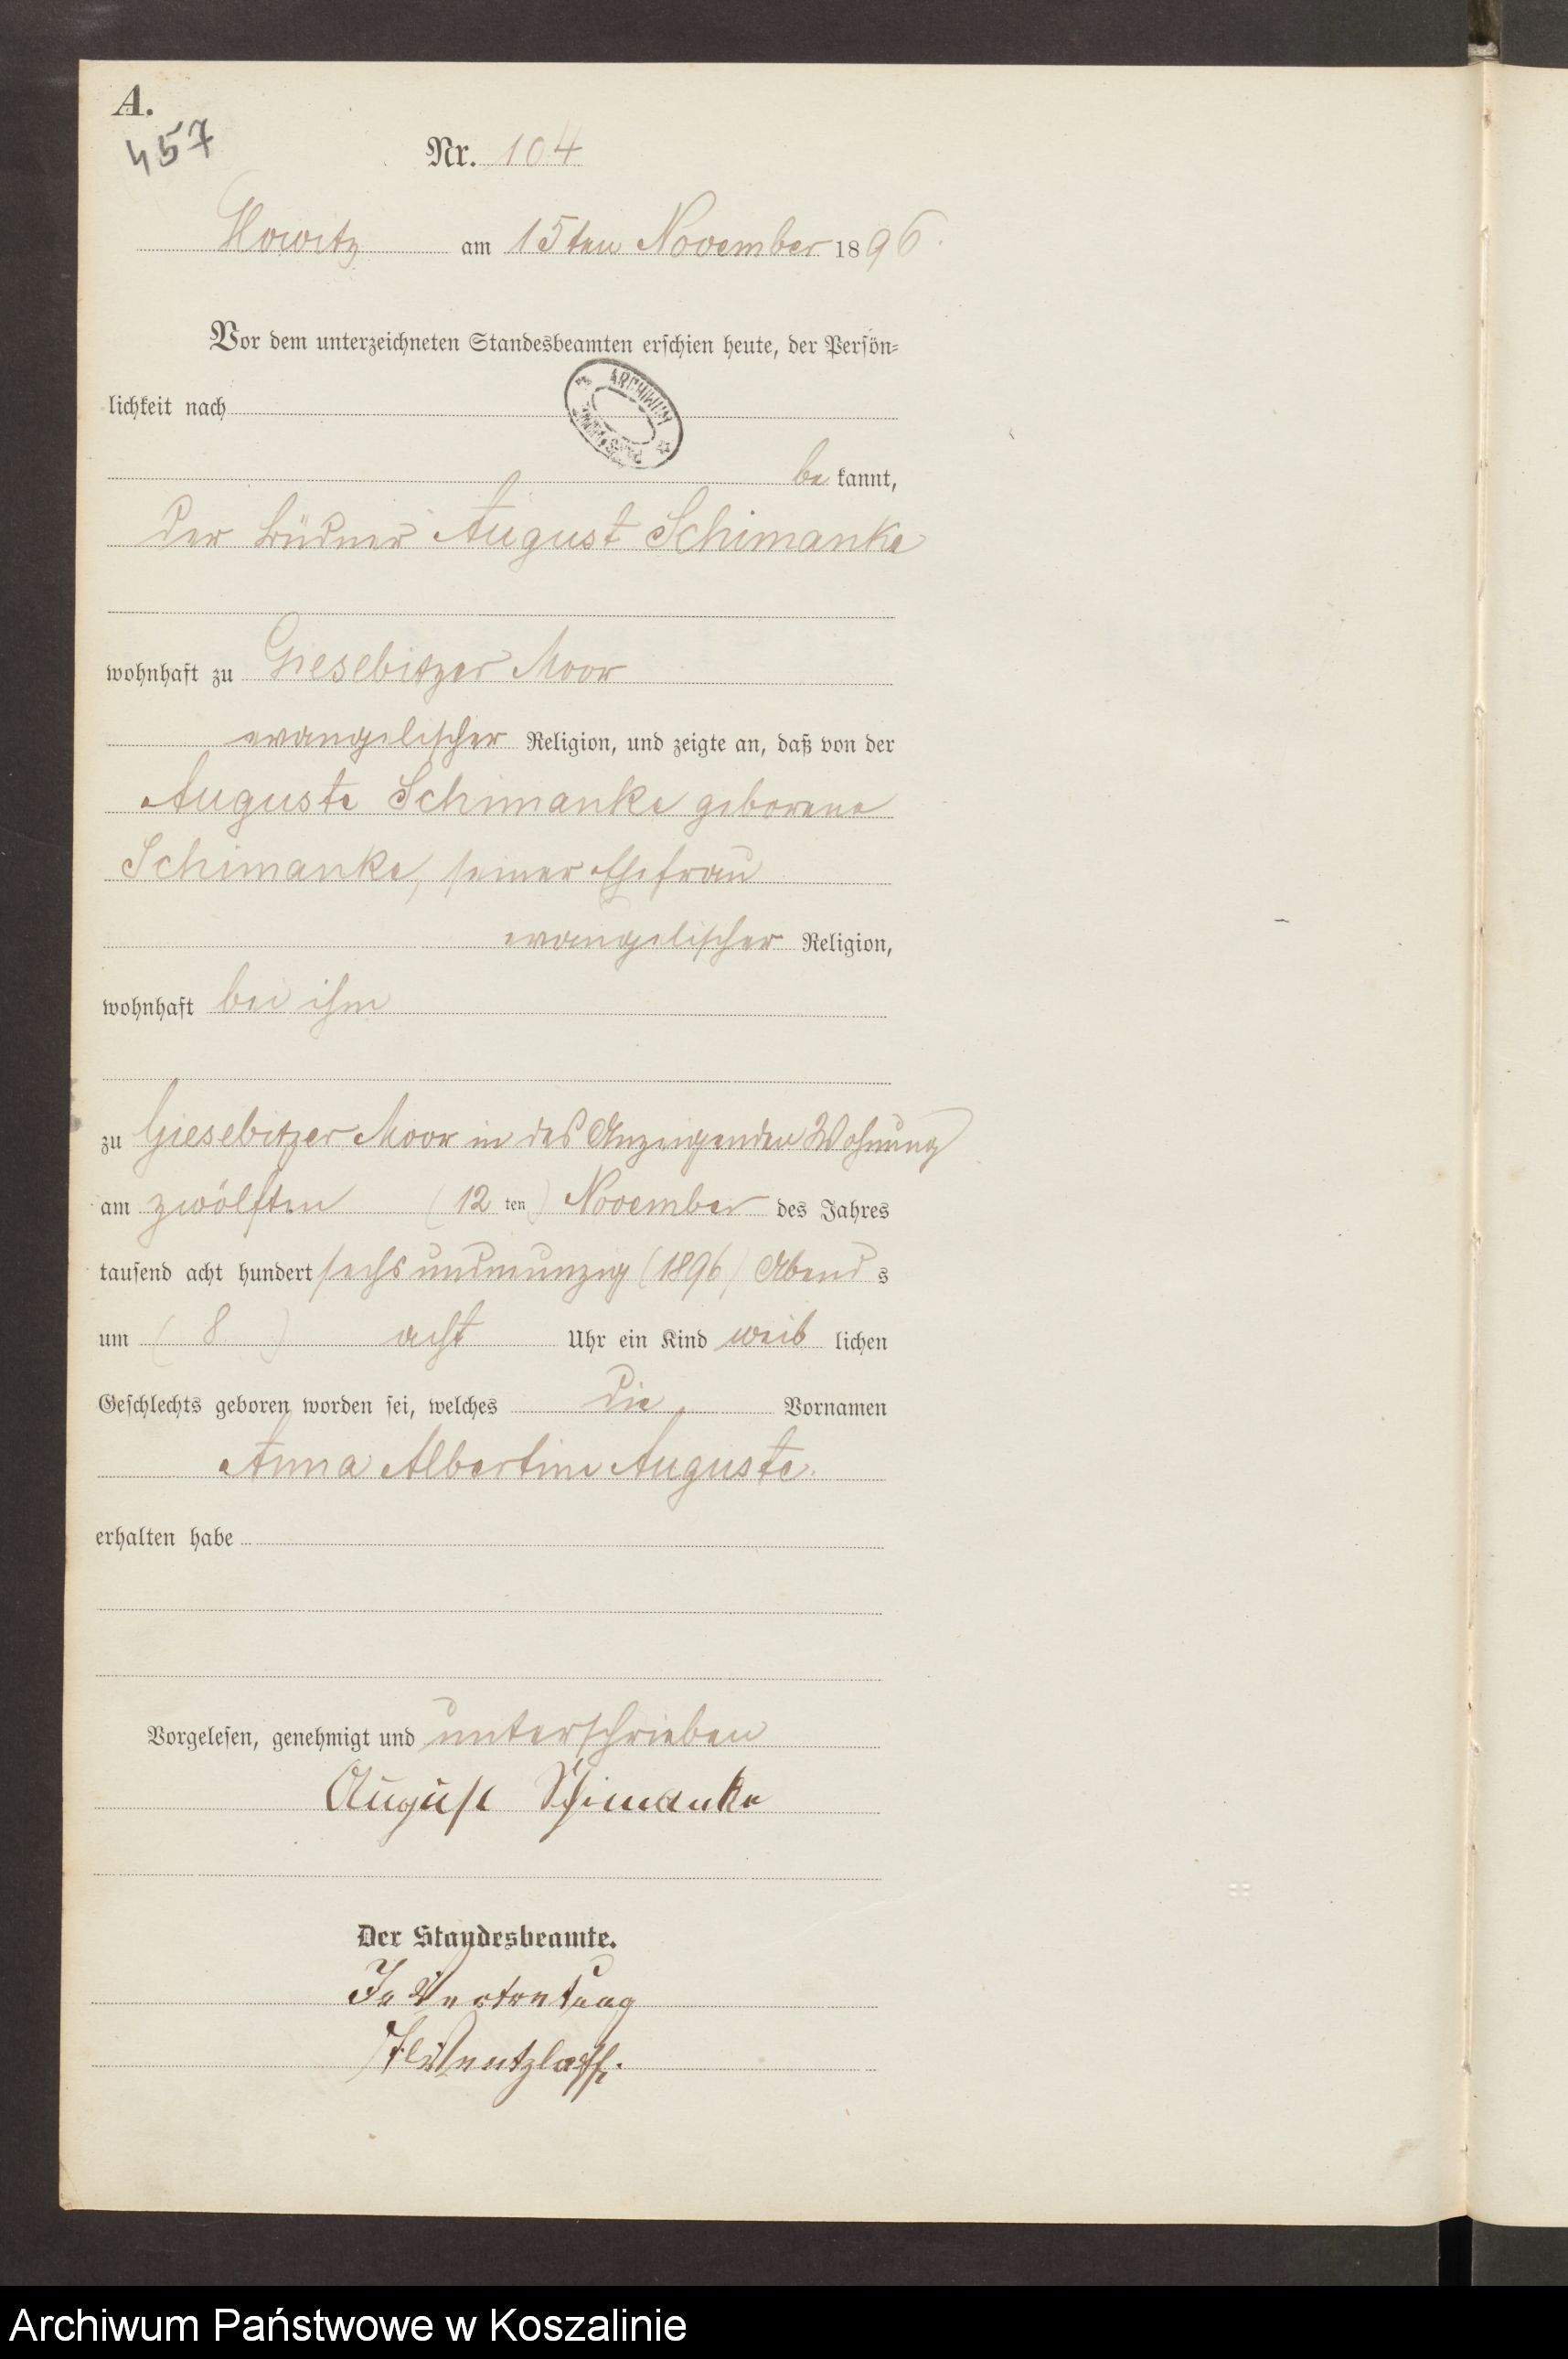 A.
457
Nr. 104
Klowitz am 15ten November 1896.
Vor dem unterzeichneten Standesbeamten erschien heute, der Persön-
lichkeit nach
ARCHIWUM
be kannt,
der Büdner August Schimanke
wohnhaft zu Giesebitzer Moor
evangelischer Religion, und zeigte an, daß von der
Auguste Schimanke geborene
Schimanke, seiner Ehefrau
evangelischer Religion,
wohnhaft bei ihm
zu Giesebitzer Moor in des Anzeigenden Wohnung
am zwölften (12 ten) November des Jahres
tausend acht hundert sechs undneunzig (1896) Abend s
um (8) acht Uhr ein Kind weib lichen
Geschlechts geboren worden sei, welches die Vornamen
Anna Albertine Auguste.
erhalten habe
Vorgelesen, genehmigt und unterschrieben
August Schimanke
Der Standesbeamte.
In Vertretung
Wentzlaff.
Archiwum Państwowe w Koszalinie